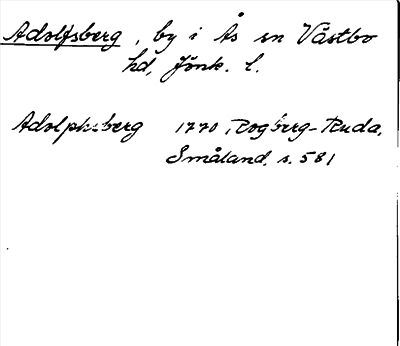 Adolfsberg, by i Ås sn Västbo
hd, Jönk. l.
Adolphsberg 1770, Rogberg-Ruda,
Småland, s. 581